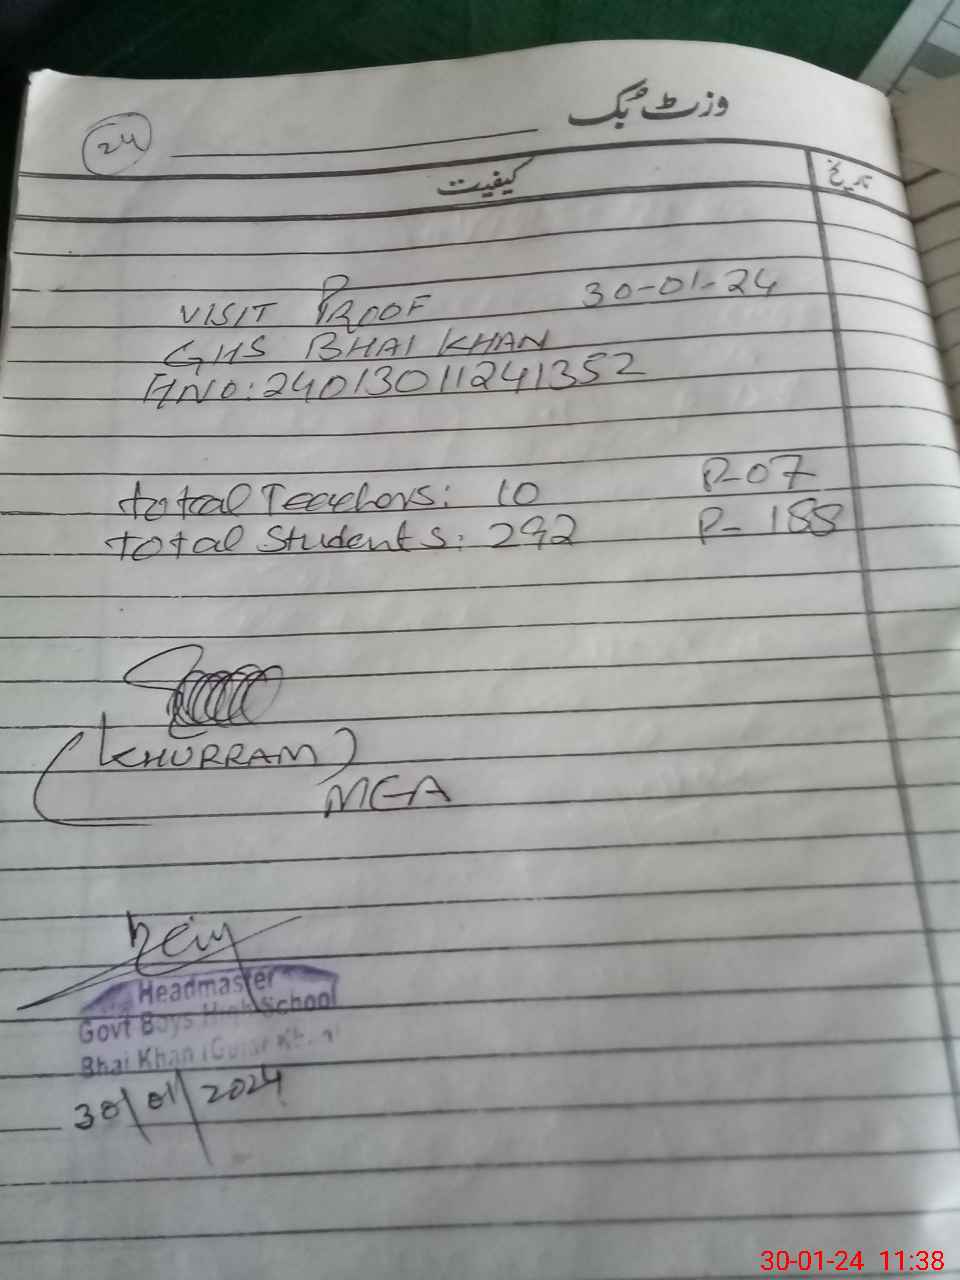 وزٹ بُک
24
کیفیت
تاریخ
VISIT PROOF 30-01-24
GHS BHAI KHAN
ANO: 24013011241352
total Teachers: 10 P-07
total Students: 292 P- 188
(KHURRAM)
MEA
Headmaster
Govt Boys High School
Bhai Khan (Gujar Khan)
30/01/2024
30-01-24 11:38